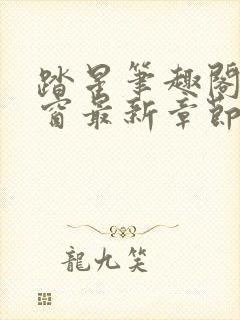 踏星筆趣閣
窗最新章節
龍九笑